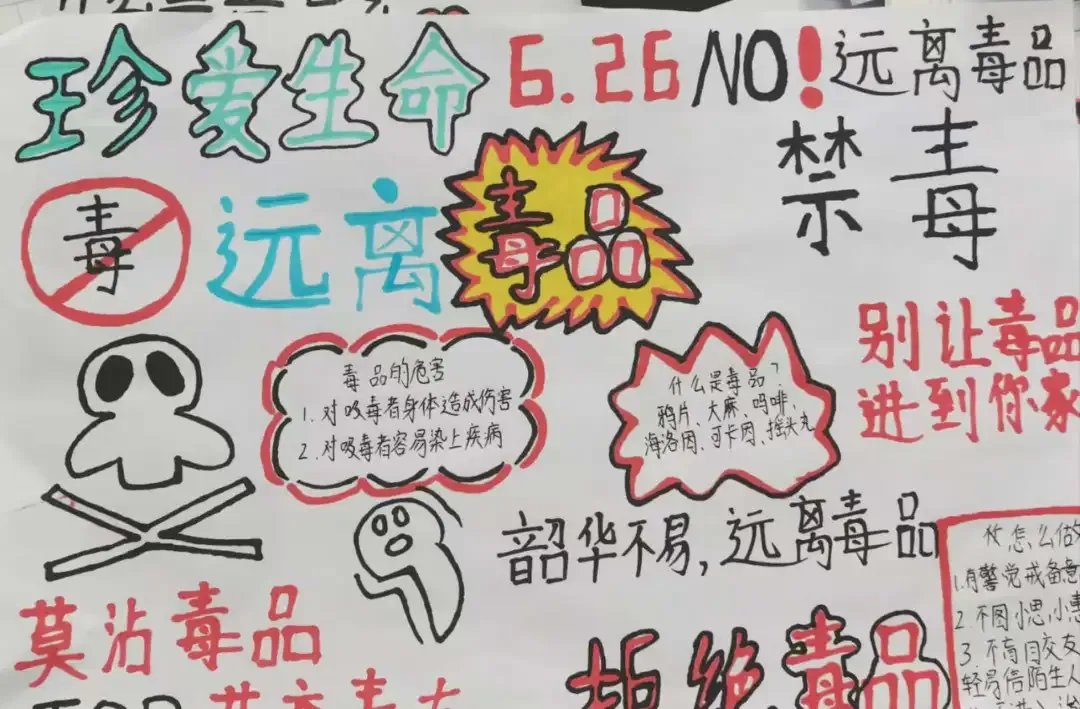 珍爱生命
6.26 NO!远离毒品
禁毒
毒
远离毒品
别让毒品
进到你家
毒品的危害
1.对吸毒者身体造成伤害
2.对吸毒者容易染上疾病
什么是毒品?
鸦片、大麻、吗啡、
海洛因、可卡因、摇头丸
韶华不易,远离毒品
莫沾毒品
拒绝毒品
怎么做
1.有警觉戒备意
2.不图小思,小惠
3.不盲目交友
轻易信陌生人